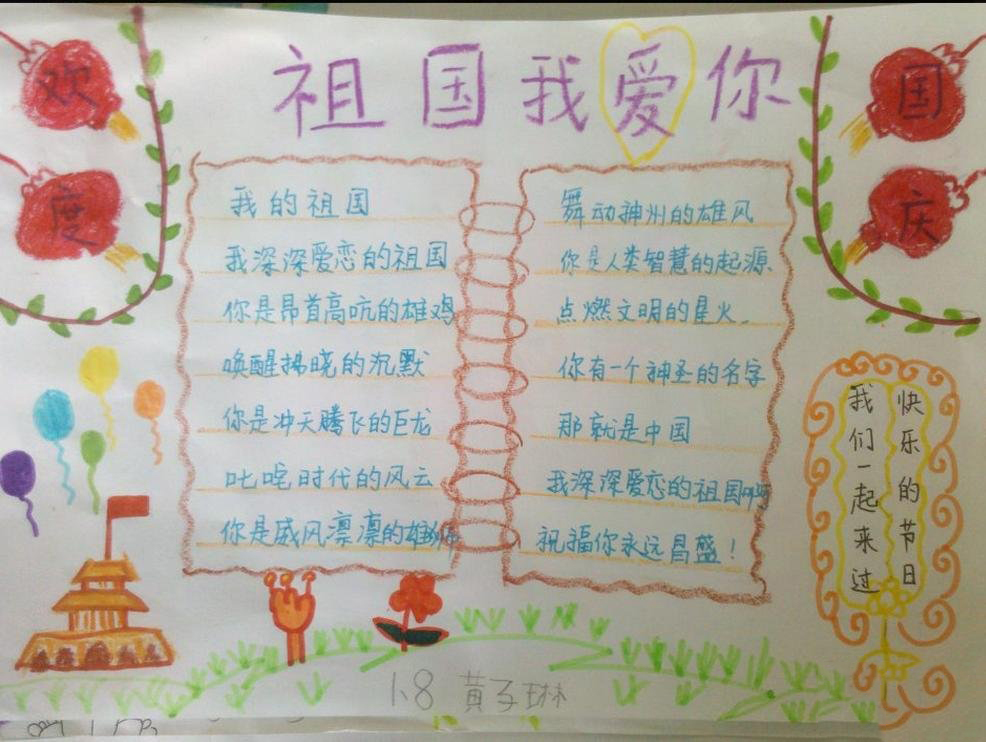 祖国我爱你
欢度
国庆
我的祖国
我深深爱恋的祖国
你是昂首高吭的雄鸡
唤醒拂晓的沉默
你是冲天腾飞的巨龙
叱咤时代的风云
你是威风凛凛的雄狮
舞动神州的雄风
你是人类智慧的起源、
点燃文明的星火。
你有一个神圣的名字
那就是中国
我深深爱恋的祖国啊
祝福你永远昌盛！
快乐的节日
我们一起来过
1.8 黄子琳